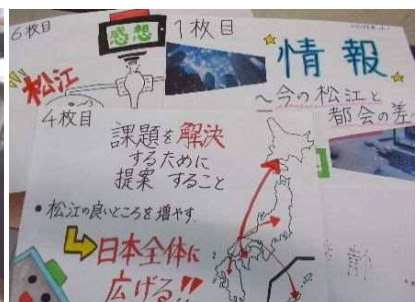 6枚目
感想
松江
1枚目
情報
〜今の松江と
都会の差〜
4枚目
課題を解決
するために
提案 すること
• 松江の良いところを増やす
日本全体に
広げる!!